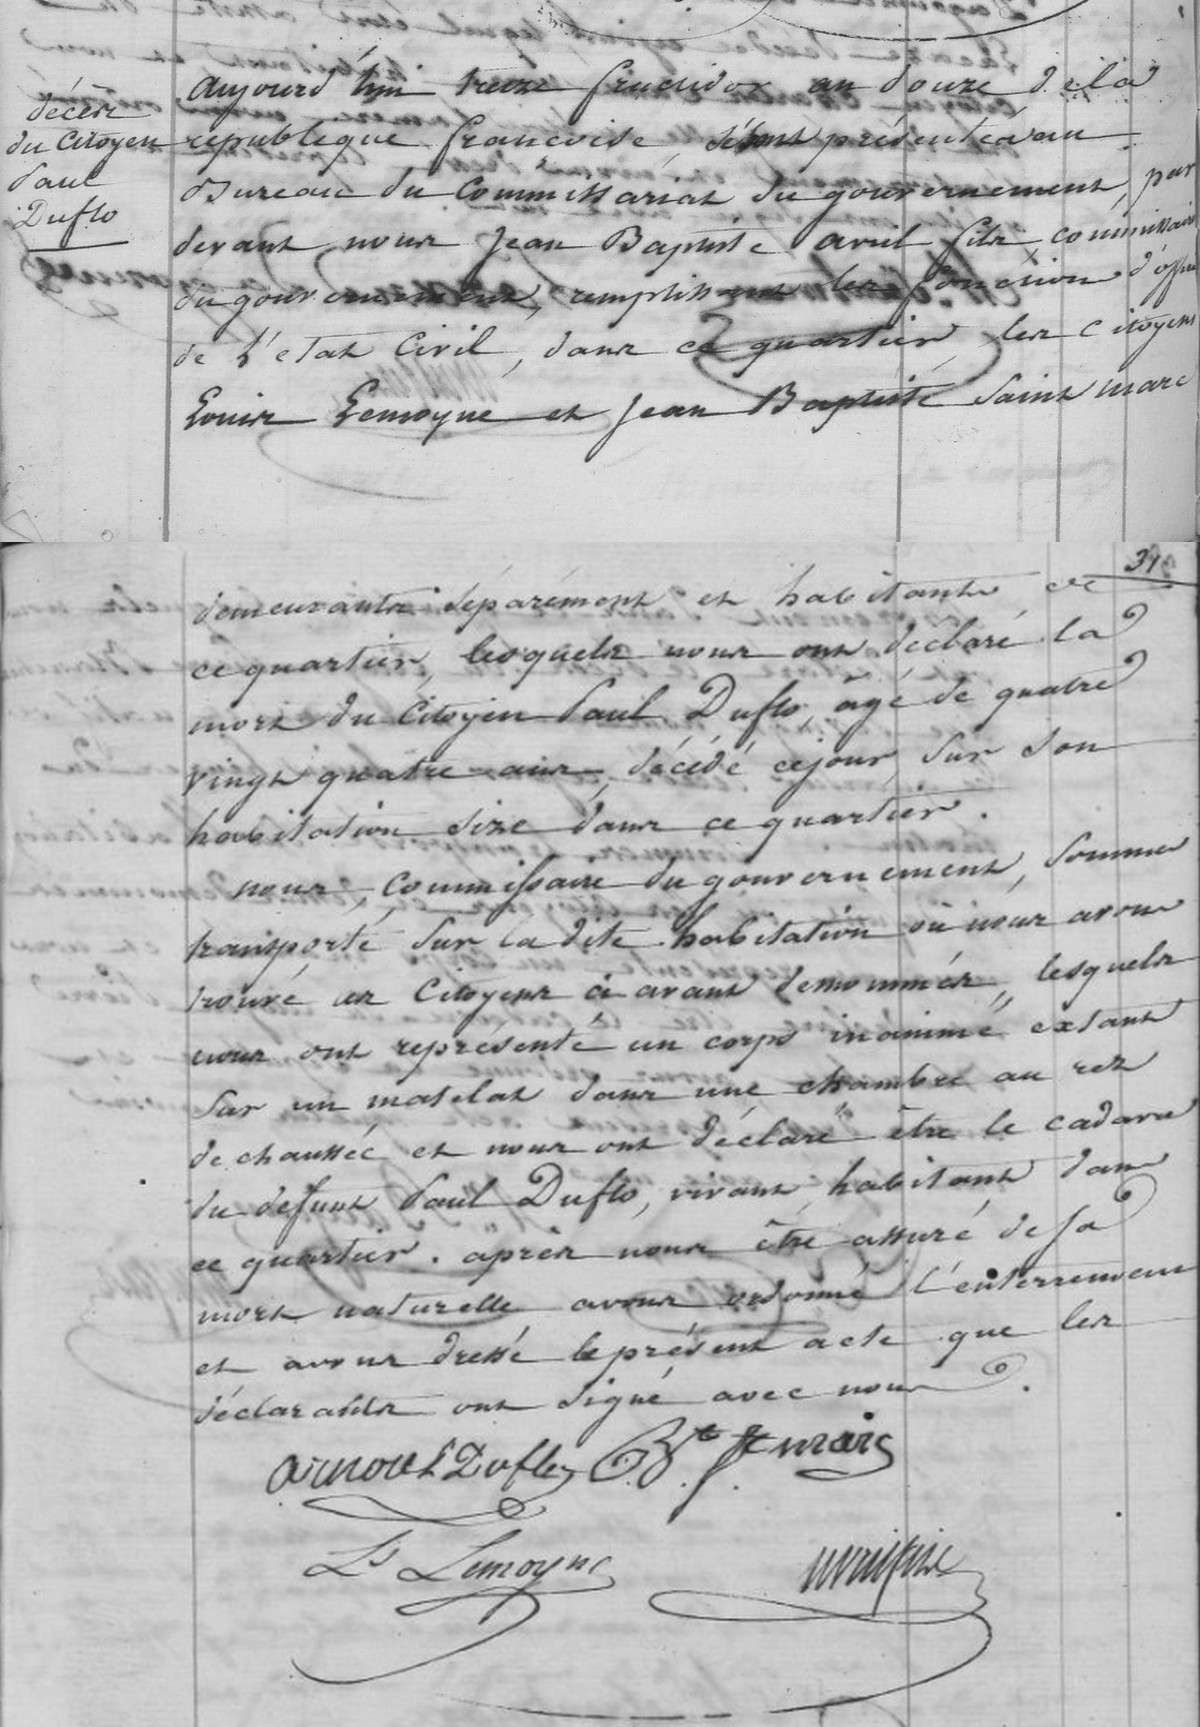 décès
du Citoyen
Paul
Duflo
Aujourd'hui treize fructidor an douze de la
republique francoise, sésont présentés au
Bureau du Commissariat du gouvernement, par
devant nous Jean Baptiste avril fils, commissaire
du gouvernement, remplissant les fonction d'offi
de L'etat Civil, dans ce quartier les Citoyens
Louis Lemoyne et Jean Baptiste Saint marc
31
demeurants séparément et habitants de
ce quartier, lesquels nous ont déclaré la
mort du Citoyen Paul Duflo, âgé de quatre
vingt quatre ans, décédé cejour, sur son
habitation size dans ce quartier.
nous, Commissaire du gouvernement, sommes
transporté sur la dite habitation où nous avons
trouvé les Citoyens ci avant denommés, lesquels
nous ont représenté un corps inanimé extant
sur un matelat dans une chambre au rez
de chaussée et nous ont déclaré être le cadavre
du defunt Paul Duflo, vivant, habitant dans
ce quartier. après nous être assuré de sa
mort naturelle avons ordonné L'enterrement
et avons dressé le présent acte que les
déclarants ont signé avec nous.
arnoult Duflo B.te St marc
Ls Lemoyne